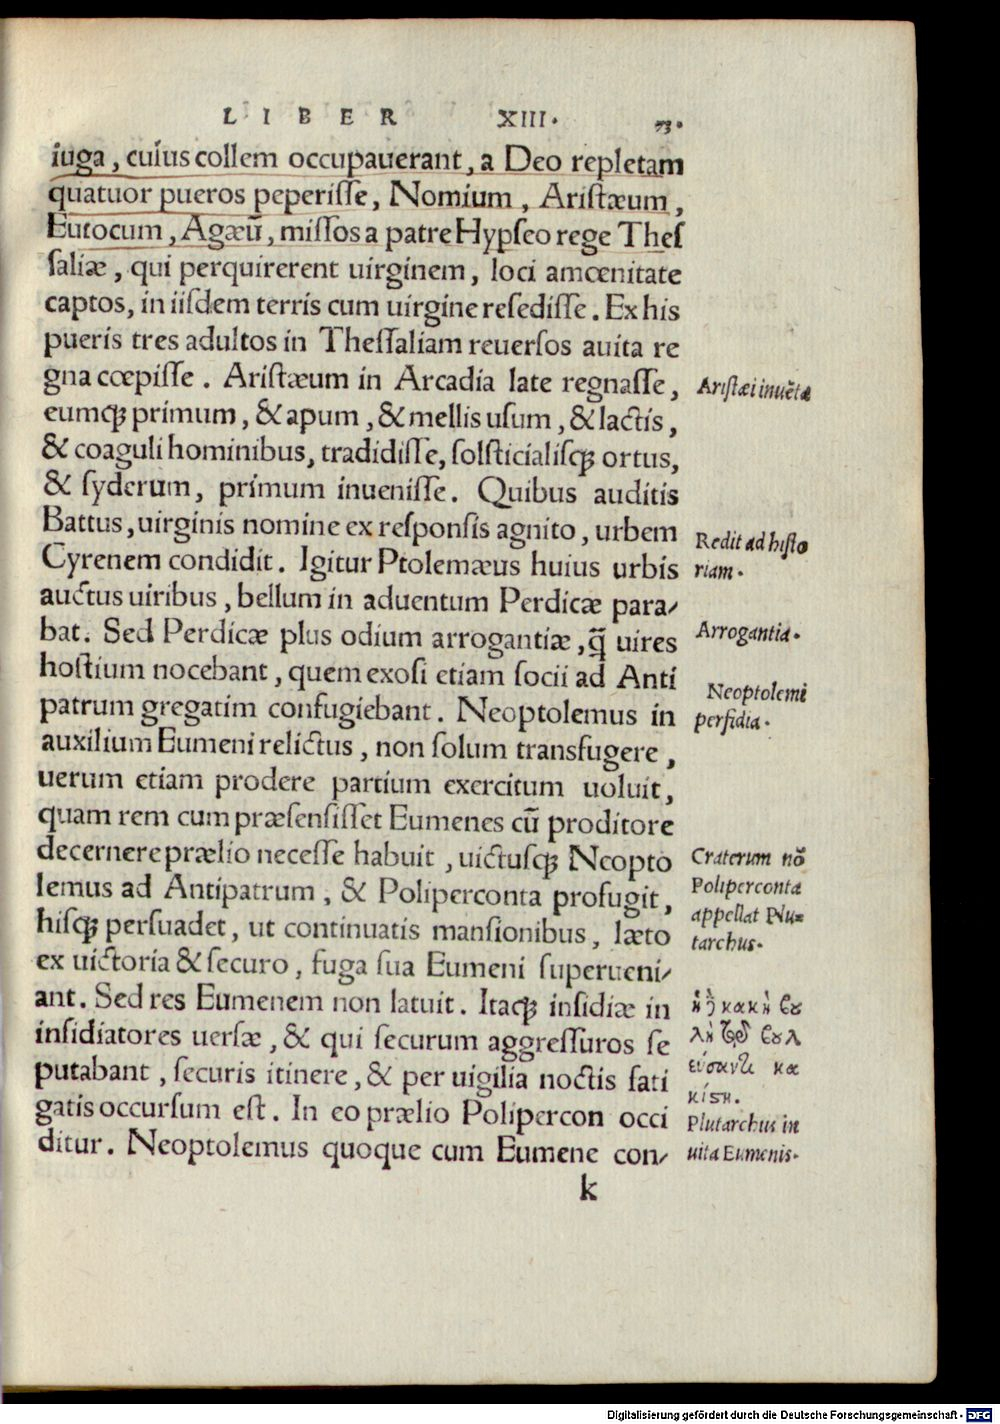 LIBER XIII. 73.
iuga, cuius collem occupauerant, a Deo repletam
quatuor pueros peperiſſe, Nomium, Ariſtæum,
Eutocum, Agæũ, miſſos a patre Hypſeo rege Theſ
ſaliæ, qui perquirerent uirginem, loci amœnitate
captos, in iiſdem terris cum uirgine reſediſſe. Ex his
pueris tres adultos in Theſſaliam reuerſos auita re
gna cœpiſſe. Ariſtæum in Arcadia late regnaſſe,
eumqꝫ primum, & apum, & mellis uſum, & lactis,
& coaguli hominibus, tradidiſſe, ſolſticialiſqꝫ ortus,
& ſyderum, primum inueniſſe. Quibus auditis
Battus, uirginis nomine ex reſponſis agnito, urbem
Cyrenem condidit. Igitur Ptolemæus huius urbis
auctus uiribus, bellum in aduentum Perdicæ para/
bat. Sed Perdicæ plus odium arrogantiæ, q̃ uires
hoſtium nocebant, quem exoſi etiam ſocii ad Anti
patrum gregatim confugiebant. Neoptolemus in
auxilium Eumeni relictus, non ſolum transfugere,
uerum etiam prodere partium exercitum uoluit,
quam rem cum præſenſiſſet Eumenes cũ proditore
decernere prælio neceſſe habuit, uictuſqꝫ Neopto
lemus ad Antipatrum, & Poliperconta profugit,
hiſqꝫ perſuadet, ut continuatis manſionibus, læto
ex uictoria & ſecuro, fuga ſua Eumeni ſuperueni/
ant. Sed res Eumenem non latuit. Itaqꝫ inſidiæ in
inſidiatores uerſæ, & qui ſecurum aggreſſuros ſe
putabant, ſecuris itinere, & per uigilia noctis fati
gatis occurſum eſt. In eo prælio Polipercon occi
ditur. Neoptolemus quoque cum Eumene con/
k
Ariſtæi inuẽta
Redit ad hiſto
riam.
Arrogantia.
Neoptolemi
perfidia.
Craterum nõ
Poliperconta
appellat Plu=
tarchus.
κακὴ βου
βουλ
κα
κίστη.
Plutarchus in
uita Eumenis.
Digitalisierung gefördert durch die Deutsche Forschungsgemeinschaft - DFG